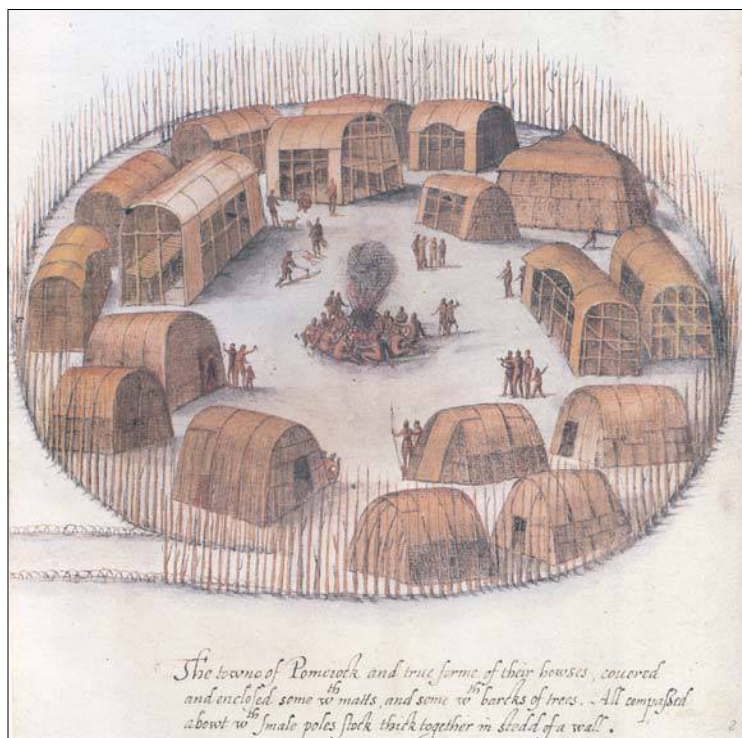 The towne of Pomeiock and true forme of their howses, couered
and enclosed some wth matts, and some wth barcks of trees. All compassed
abowt wth smale poles stock thick together in stedd of a wall.
2